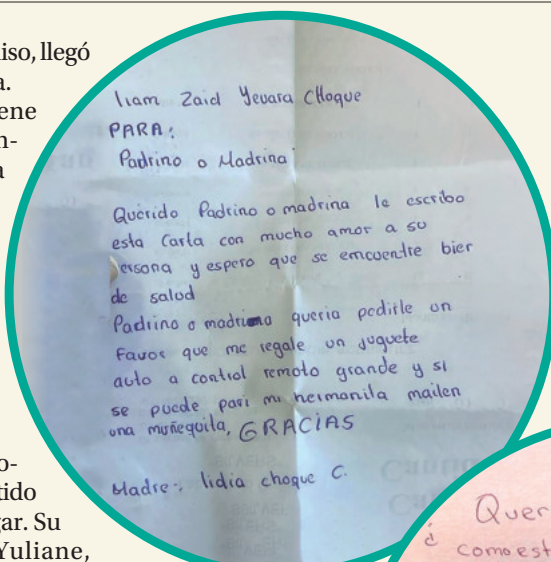 iso, llegó
a.
ene
n-
a
liam Zaid Yevara CHoque
PARA:
Padrino o Madrina
Querido Padrino o madrina le escribo
esta Carta con mucho amor a su
ersona y espero que se emcuentre bier
de salud
Padrino o madrina queria pedirle un
Favor que me regale un juguete
auto a control remoto grande y si
se puede para mi hermanita mailen
una muñequita, GRACIAS
Madre: lidia choque C.
o-
tido
gar. Su
Yuliane,
Quer
como est